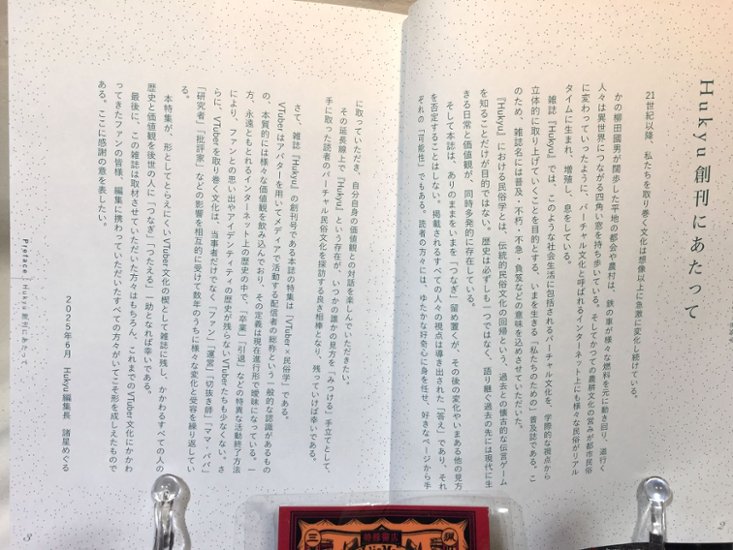 Hukyu創刊にあたって
21世紀以降、私たちを取り巻く文化は想像以上に急激に変化し続けている。
かの柳田國男が闊歩した平地の都会や農村は、鉄の車が様々な燃料を元に動き回り、道行く
人々は異世界につながる四角い窓を持ち歩いている。そしてかつての農耕文化の営みが都市民俗
に変わっていったように、バーチャル文化と呼ばれるインターネット上にも様々な民俗がリアル
タイムに生まれ、増殖し、息をしている。
雑誌『Hukyu』では、このような社会生活に包括されるバーチャル文化を、学際的な視点から
立体的に取り上げていくことを目的とする、いまを生きる「私たちのための」普及誌である。こ
のため、雑誌名には普及・不朽・不急・負笈などの意味を込めさせていただいた。
『Hukyu』における民俗学とは、伝統的民俗文化の回帰という、過去との懐古的な伝言ゲーム
を知ることだけが目的ではない。歴史は必ずしも一つではなく、語り継ぐ過去の先には現代に生
きる日常と価値観が、同時多発的に存在している。
そして本誌は、ありのままをいまを「つなぎ」留め置くが、その後の変化やいまある他の見方
を否定することはしない。掲載されるすべての人々の視点は導き出された「答え」であり、それ
ぞれの「可能性」でもある。読者の方々には、ゆたかな好奇心に身を任せ、好きなページから手
に取っていただき、自分自身の価値観との対話を楽しんでいただきたい。
その延長線上で『Hukyu』という存在が、いつかの誰かの見方を「みつける」手立てとして、
手に取った読者のバーチャル民俗文化を探訪する良き相棒となり、残っていけば幸いである。
さて、雑誌『Hukyu』の創刊号である本誌の特集は「VTuber×民俗学」である。
VTuberはアバターを用いてメディアで活動する配信者の総称という一般的な認識があるもの
の、本質的には様々な価値観を飲み込んでおり、その定義は現在進行形で曖昧になっている。一
方、永遠ともとれるインターネット上の歴史の中で、「卒業」「引退」などの特異な活動終了方法
により、ファンとの思い出やアイデンティティの歴史が残らないVTuberたちも少なくない。さ
らに、VTuberを取り巻く文化は、当事者だけでなく「ファン」「運営」「切抜き師」「ママ・パパ」
「研究者」「批評家」などの影響を相互的に受けて数年のうちに様々な変化と受容を繰り返してい
る。
本特集が、形としてとらえにくいVTuber文化の楔として雑誌に残し、かかわるすべての人の
歴史と価値観を後世の人に「つなぎ」「つたえる」一助となれば幸いである。
最後に、この雑誌は取材させていただいた方々はもちろん、これまでのVTuber文化にかかわ
ってきたファンの皆様、編集に携わっていただいたすべての方々がいてこそ形を成しえたもので
ある。ここに感謝の意を表したい。
2025年6月 Hukyu編集長 諸星めぐる
Preface｜Hukyu創刊にあたって
3
2
特殊書店
三